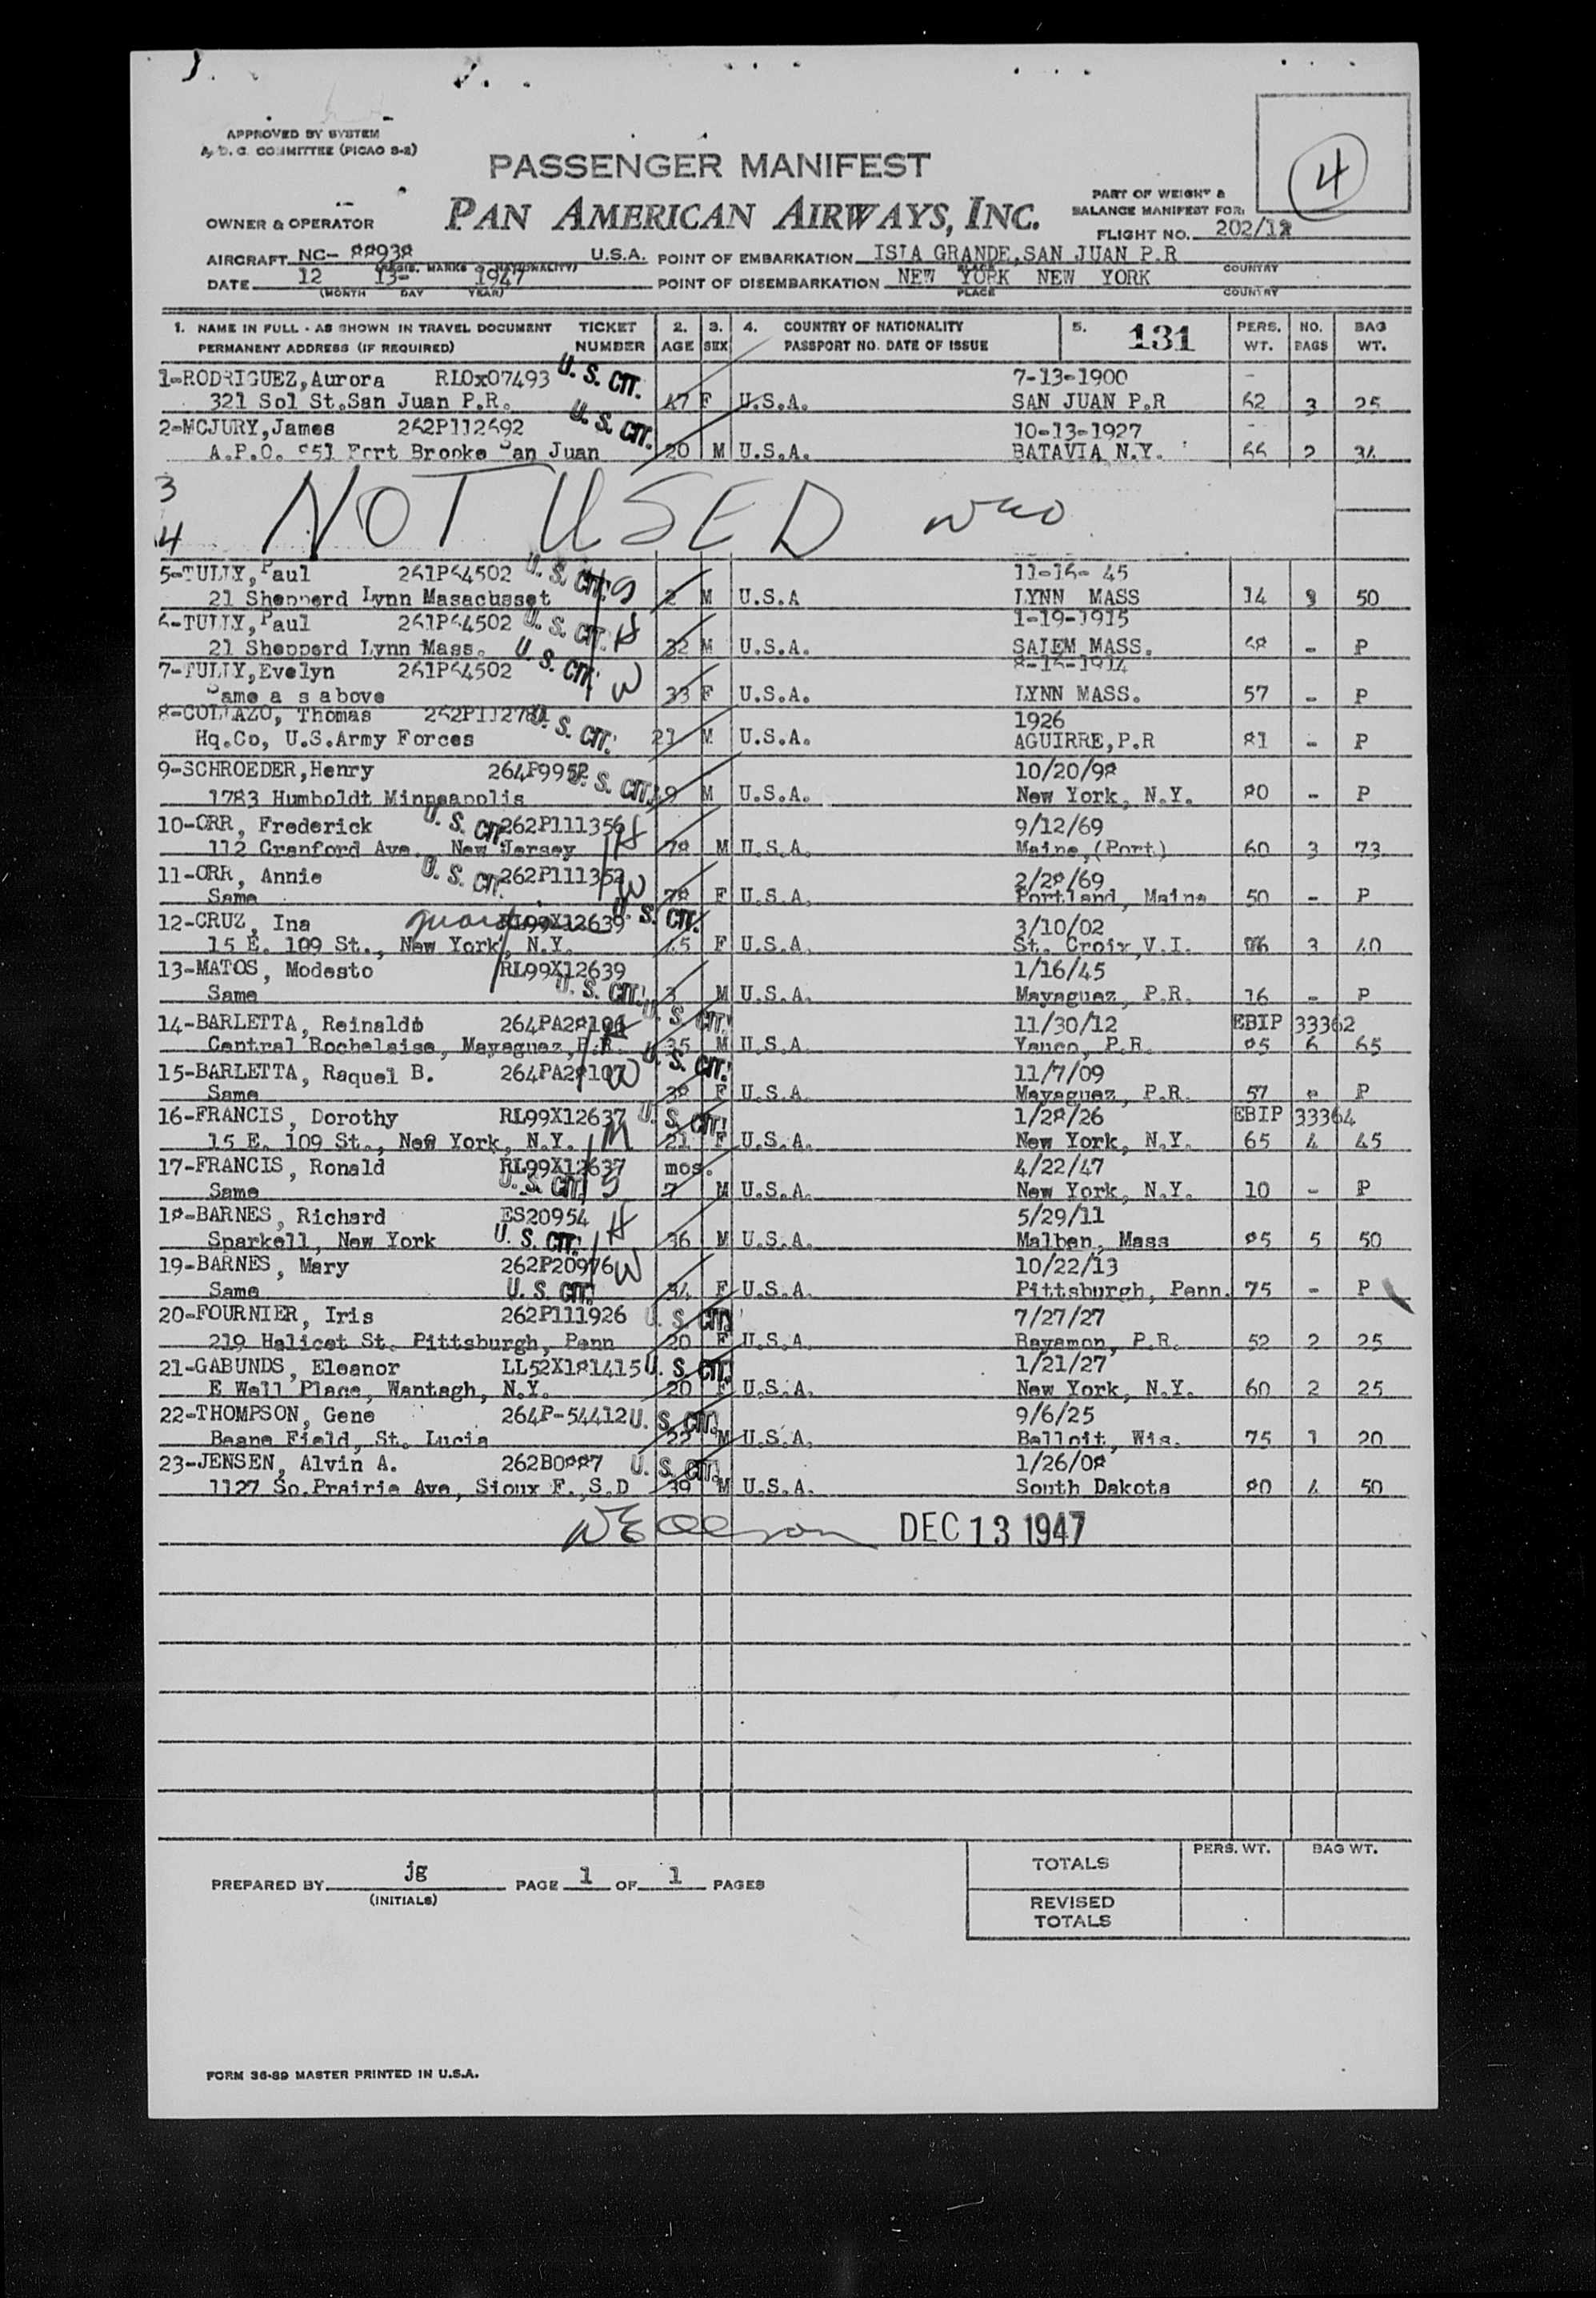 APPROVED BY SYSTEM
A. D. C. COMMITTEE (PICAO S-2)
PASSENGER MANIFEST
4
PART OF WEIGHT &
BALANCE MANIFEST FOR:
OWNER & OPERATOR
PAN AMERICAN AIRWAYS, INC.
FLIGHT NO. 202/12
AIRCRAFT NC- 88938 U.S.A. POINT OF EMBARKATION ISLA GRANDE,SAN JUAN P.R
(REGIS. MARKS & NATIONALITY) PLACE COUNTRY
DATE 12 13- 1947 POINT OF DISEMBARKATION NEW YORK NEW YORK
(MONTH DAY YEAR) PLACE COUNTRY
1. NAME IN FULL - AS SHOWN IN TRAVEL DOCUMENT TICKET 2. 3. 4. COUNTRY OF NATIONALITY 5. 131 PERS. NO. BAG
PERMANENT ADDRESS (IF REQUIRED) NUMBER AGE SEX PASSPORT NO. DATE OF ISSUE WT. BAGS WT.
1-RODRIGUEZ,Aurora RLOx07493 U. S. CIT. 7-13-1900
321 Sol St.San Juan P.R. 47 F U.S.A. SAN JUAN P.R 62 3 25
2-MCJURY,James 262P112692 U. S. CIT. 10-13-1927
A.P.O. 851 Fort Brooke San Juan 20 M U.S.A. BATAVIA N.Y. 66 2 34
3
4 NOT USED
5-TULLY,Paul 261P64502 U. S. CIT. 11-16- 45
21 Shepperd Lynn Masacusset 2 M U.S.A LYNN MASS 14 50
6-TULLY,Paul 261P64502 U. S. CIT. H 1-19-1915
21 Shepperd Lynn Mass. 32 M U.S.A. SALEM MASS. 68 - P
7-TULLY,Evelyn 261P64502 U. S. CIT. W 8-16-1914
Same a s above 33 F U.S.A. LYNN MASS. 57 - P
8-COLLAZO, Thomas 262P112781 U. S. CIT. 1926
Hq.Co, U.S.Army Forces 21 M U.S.A. AGUIRRE,P.R 81 - P
9-SCHROEDER,Henry 264P9952 U. S. CIT. 10/20/98
1783 Humboldt Minneapolis 49 M U.S.A. New York, N.Y. 80 - P
10-ORR, Frederick U. S. CIT. 262P111356 H 9/12/69
112 Cranford Ave. New Jersey 78 M U.S.A. Maine,(Port) 60 3 73
11-ORR, Annie U. S. CIT. 262P111352 W 2/28/69
Same 78 F U.S.A. Portland, Maine 50 - P
12-CRUZ, Ina guardian RL99X12639 U. S. CIT. 3/10/02
15 E. 109 St., New York, N.Y. 45 F U.S.A. St. Croix,V.I. 3 40
13-MATOS, Modesto RL99X12639 1/16/45
Same U. S. CIT. 3 M U.S.A. Mayaguez, P.R. 16 - P
14-BARLETTA, Reinaldo 264PA28106 H U. S. CIT. 11/30/12 EBIP 33362
Central Rochelaise, Mayaguez,P.R. 35 M U.S.A. Yauco, P.R. 85 6 65
15-BARLETTA, Raquel B. 264PA28107 W U. S. CIT. 11/7/09
Same 38 F U.S.A. Mayaguez, P.R. 57 - P
16-FRANCIS, Dorothy RL99X12637 U. S. CIT. 1/28/26 EBIP 33364
15 E. 109 St., New York, N.Y. M 21 F U.S.A. New York, N.Y. 65 4 45
17-FRANCIS, Ronald RL99X12637 mos. 4/22/47
Same U. S. CIT. S 7 M U.S.A. New York, N.Y. 10 - P
18-BARNES, Richard ES20954 H 5/29/11
Sparkell, New York U. S. CIT. 36 M U.S.A. Malben, Mass 85 5 50
19-BARNES, Mary 262P20976 W 10/22/13
Same U. S. CIT. 34 F U.S.A. Pittsburgh, Penn. 75 - P
20-FOURNIER, Iris 262P111926 U. S. CIT. 7/27/27
219 Halicet St. Pittsburgh, Penn 20 F U.S.A. Bayamon, P.R. 52 2 25
21-GABUNDS, Eleanor LL52X181415 U. S. CIT. 1/21/27
E Wall Place, Wantagh, N.Y. 20 F U.S.A. New York, N.Y. 60 2 25
22-THOMPSON, Gene 264P-54412 U. S. CIT. 9/6/25
Beane Field, St. Lucia 22 M U.S.A. Belloit, Wis. 75 1 20
23-JENSEN, Alvin A. 262B0887 U. S. CIT. 1/26/08
1127 So.Prairie Ave, Sioux F.,S.D 39 M U.S.A. South Dakota 80 4 50
DEC 13 1947
TOTALS PERS. WT. BAG WT.
PREPARED BY jg PAGE 1 OF 1 PAGES
(INITIALS)
REVISED
TOTALS
FORM 36-89 MASTER PRINTED IN U.S.A.